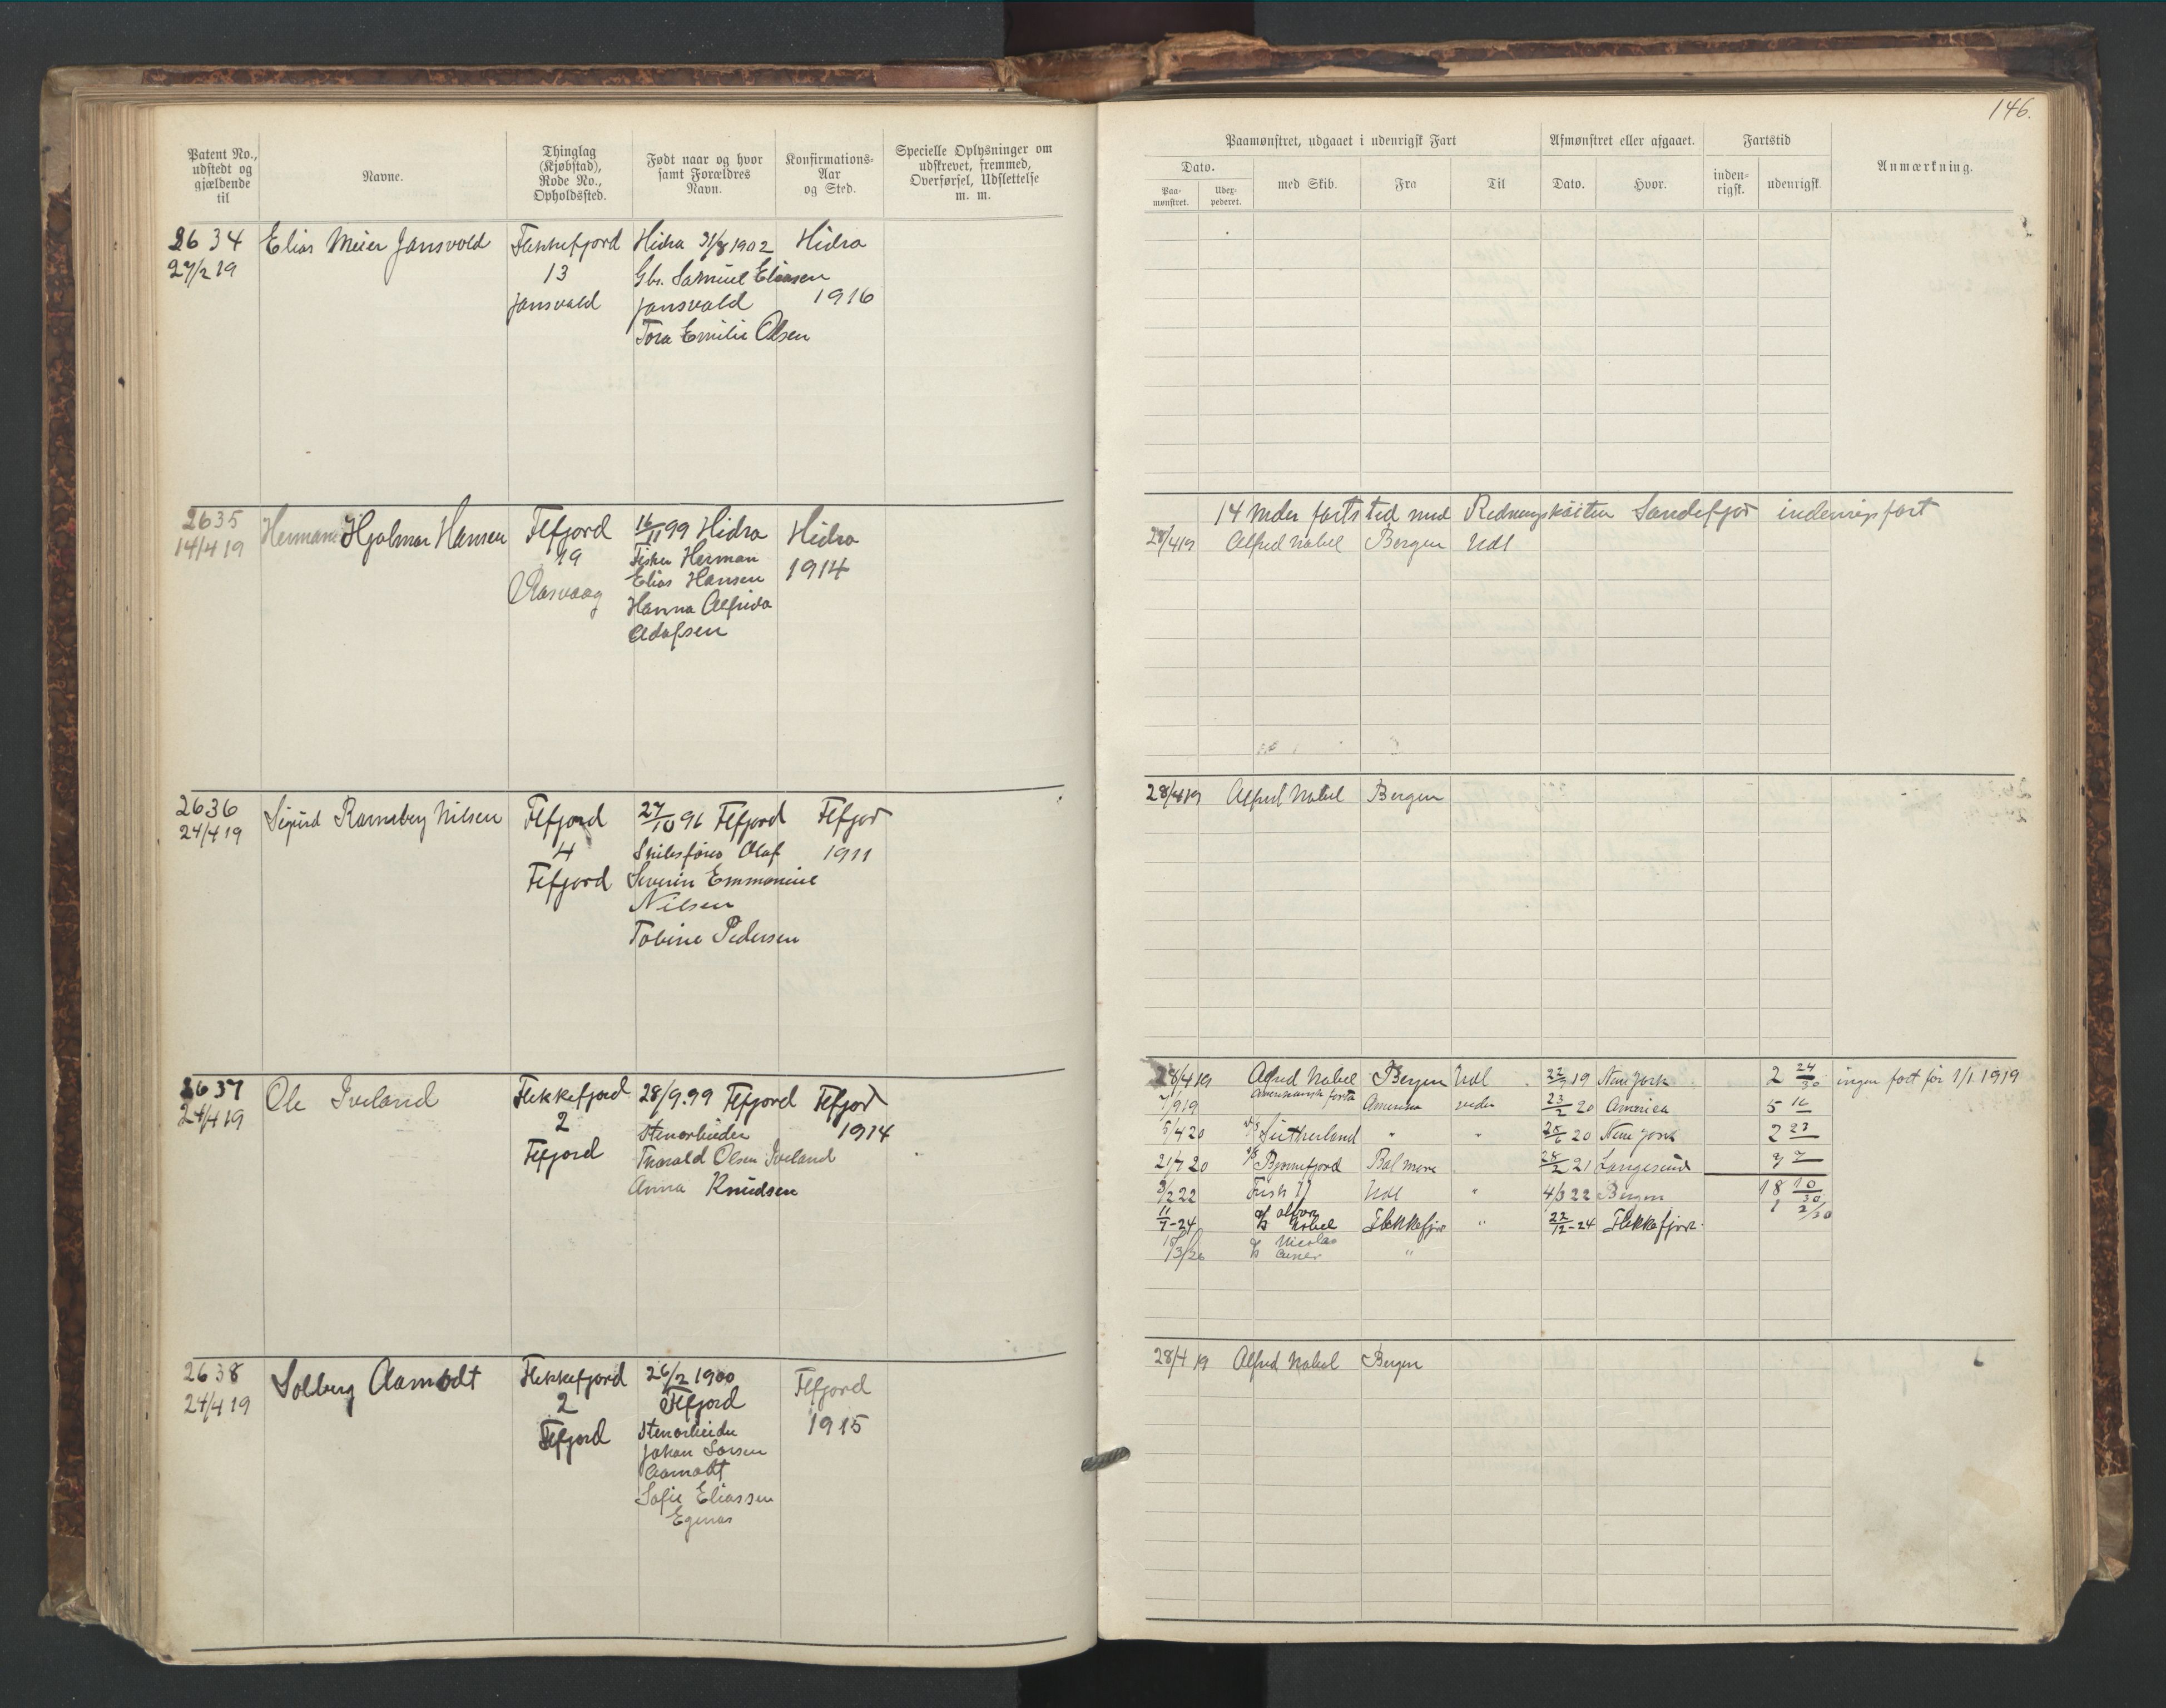 146.
Patent No., udstedt og gjældende til
Navne.
Thinglag (Kjøbstad), Rode No., Opholdssted.
Født naar og hvor samt Forældres Navn.
Konfirmations-Aar og Sted.
Specielle Oplysninger om udskrevet, fremmed, Overførsel, Udslettelse m. m.
Paamønstret, udgaaet i udenrigsk Fart
Afmønstret eller afgaaet.
Fartstid
Anmærkning.
Dato.
Paa-mønstret.
Udex-pederet.
med Skib.
Fra
Til
Dato.
Hvor.
inden-rigsk.
udenrigsk.
2634 Elias Meier Jansvold Flekkefjord Hidra 31/8 1902 Hidra
27/2 19 13 Gbr. Samuel Eliasen
Jansvold Jansvold 1916
Tora Emilie Olsen
2635 Hermann Hjalmar Hansen Flfjord 16/11 99 Hidra Hidra
14/4 19 19 Fisker Herman
Aasvaag Elias Hansen 1914
Hanna Alfrida
Adolfsen
14 mdr fartstid med Redningsköiten Sandefjor indenrigsfart
28/4 19 Alfred Nobel Bergen Udl
2636 Sigurd Ramsberg Nilsen Flfjord 27/10 96 Flfjord Flfjor
24/4 19 4 Skibsfører Olaf 1911
Flfjord Severin Emmanuel
Nilsen
Tobine Pedersen
28/4 19 Alfred Nobel Bergen
2637 Ole Iveland Flekkefjord 28/9.99 Flfjord Flfjor
24/4 19 2 Stenarbeider 1914
Flfjord Thorald Olsen Iveland
Anna Knudsen
28/4 19 Alfred Nobel Bergen Udl 22/7 19 New York 2 24/30 ingen fart før 1/1 1919
1/9 19 Amerikansk farts Amerika 23/2 20 America 5
5/4 20 Sutherland " " 28/6 20 New York 2 23
21/7 20 Bonnefjord 28/2 21 Langesund 7
3/2 22 Fisk II Udl " 4/3 22 Bergen 18 10/30
11/7-24 Nobel Flekkefjor " 22/12-24 Flekkefjor. 1 2/30
15/3/26 Nicolas "
2638 Solberg Aamodt Flekkefjord 26/2 1900 Flfjord
24/4 19 2 Flfjord 1915
Flfjord Stenarbeider
Johan Larsen
Aamodt
Sofie Eliassen
Egenæs
28/4 19 Alfred Nobel Bergen